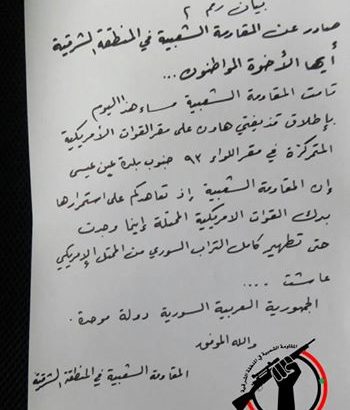 بيان رقم ٢
صادر عن المقاومة الشعبية في المنطقة الشرقية
أيها الأخوة المواطنون ...
قامت المقاومة الشعبية مساء هذا اليوم
بإطلاق قذيفتي هاون على مقر القوات الأمريكية
المتمركزة في مقر اللواء ٩٣ جنوب بلدة عين عيسى
إن المقاومة الشعبية إذ تعاهدكم على استمرارها
بدك القوات الامريكية المحتلة إينما وجدت
حتى تطهير كامل التراب السوري من المحتل الإمريكي
عاشت ....
الجمهورية العربية السورية دولة موحدة .
والله الموفق
المقاومة الشعبية في المنطقة الشرقية
المقاومة الشعبية في المنطقة الشرقية